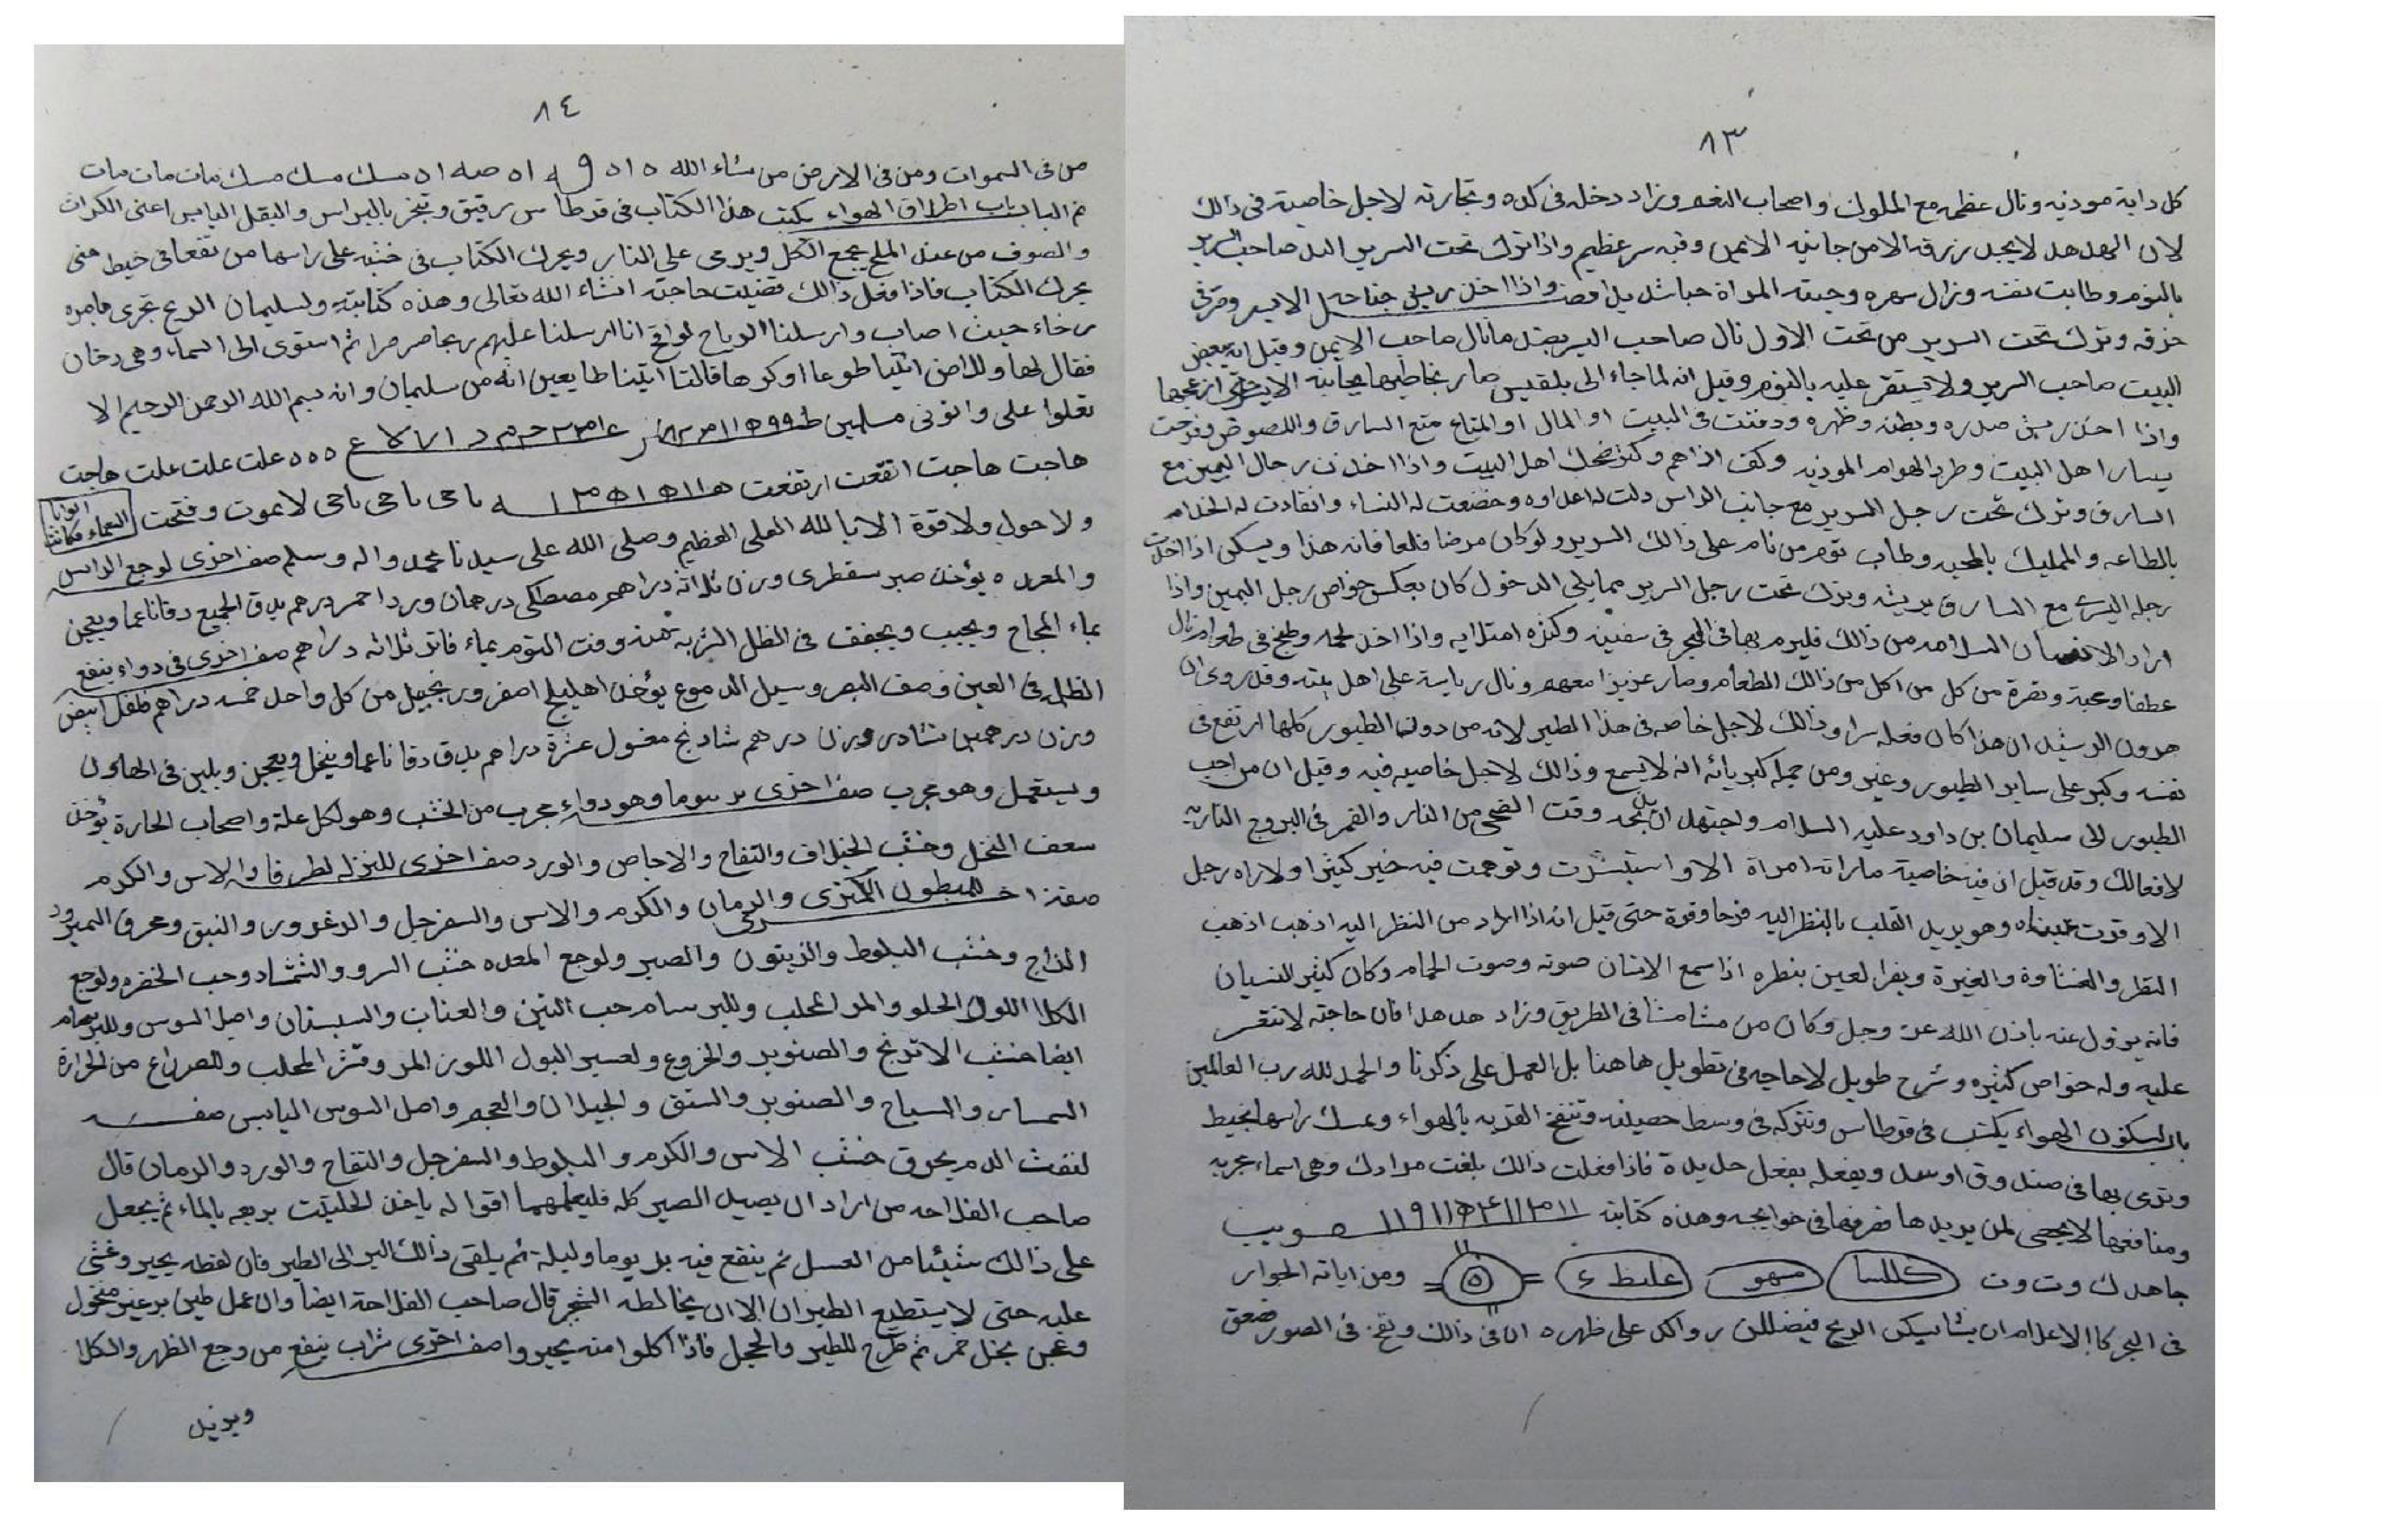 ٨٣
كل دابة موذيه ونال عظمه مع الملوك واصحاب النعم وزاد دخله فى كده وتجارته لاجل خاصية فى ذالك
لان الهدهد لا يجد رزقه الا من جانبه الايمن وفيه سر عظيم واذا ترك تحت السرير صاحب السرير
بالنوم وطابت نفسه وزال سهره وحبته المراة واذا اخذ ريش جناحه الايسر وصر فى
خرقه وترك تحت السرير من تحت الاول نال صاحب السرير مانال صاحب الايمن وقيل انه يبغض
البيت صاحب السرير ولا يستقر عليه بالنوم وقيل انه لما جاء الى بلقيس صار يخاطبها بجانبه الايسر حتى ازعجها
واذا اخذ ريش صدره وبطنه وظهره ودفنت فى البيت او المال او المتاع منع السارق واللصوص وفرحت
يسار اهل البيت وطرد الهوام الموذيه وكف اذاهم وكثر ضحك اهل البيت واذا اخذت رجل اليمين مع
الساق وترك تحت رجل السرير مع جانب الراس ذلت له اعداوه وخضعت له النساء وانقادت له الخدام
بالطاعه والممليك بالمحبه وطاب نوم من نام على ذالك السرير ولو كان مرضا قلعا فانه هذا ويسكن اذا اخذت
رجله اليسرى مع الساق بريشه وترك تحت رجل السرير مما يلى الدخول كان بعكس خواص رجل اليمين واذا
اراد الانسان السلامه من ذالك فليرم بها فى البحر فى سفينه وكثره امتلايه واذا اخذ لحمه وطبخ فى طعام نال
عطفا ومحبة ونصرة من كل من اكل من ذالك الطعام وصار عزيزا معهم ونال رياسة على اهل بيته وقد روى ان
هرون الرشيد ان هذا كان فعله سرا وذالك لاجل خاصه فى هذا الطير لانه من دون الطيور كلها ارتفع فى
نفسه وكبر على ساير الطيور وغير ومن جملة كبريائه انه لا يسمع وذالك لاجل خاصيه فيه وقيل ان من احب
الطيور الى سليمان بن داود عليه السلام واجتهد ان وقت الضحى من النار والقمر فى البروج الناريه
لافعالك وقد قيل ان فيه خاصية ماراته امراة الا واستبشرت وتوهمت فيه خير كثيرا ولا راه رجل
الا وقرت عيناه وهو يزيل القلب بالنظر اليه فرحا وقوة حتى قيل انه اذا اراد من النظر اليه اذهب اذهب
النظر والغشاوة والغيرة ويقرا لعين بنظره اذا سمع الانسان صوته وصوت الحمام وكان كثير للنسيان
فانه يزول عنه باذن الله عز وجل وكان من مشا مشا فى الطريق وزاد هدهدا فان حاجته لا تتعسر
عليه وله خواص كثيره وشرح طويل لاحاجه فى تطويل هاهنا بل العمل على ذكرنا والحمد لله رب العالمين
باب لسكون الهواء يكتب فى قرطاس وتتركه فى وسط وتنفخ القربه بالهواء وعسك راسها بخيط
وترى بها فى صندوق او سل ويفعله بفعل حديدة فاذا فعلت ذالك بلغت مرادك وهى اسماء مجربه
ومنافعها لا يحصى لمن يريدها فصرفها فى حوايجه وهذه كتابته
جاهدك وت وت كللسا مهو غلبظ ٤ ٥ ومن اياته الجوار
فى البحر كالاعلام ان يشا يسكن الريح فيضللن رواكد على ظهره ان فى ذالك ونفخ فى الصور فصعق
٨٤
من فى السموات ومن فى الارض من شاء الله مسك مسك مسك مات مات مات
تم الباب باب اطلاق الهواء يكتب هذا الكتاب فى قرطاس رقيق وتبخر بالبراس والبقل اليابس اعنى الكراث
والصوف من عند الملح يجمع الكل ويرمى على النار ويحرك الكتاب فى خشبه على راسها من تقعا فى خيط حتى
يحرك الكتاب فاذا فعل ذالك قضيت حاجته انشاء الله تعالى وهذه كتابته ولسليمان الريح تجرى بامره
رخاء حيث اصاب وارسلنا الرياح لواقح انا ارسلنا عليهم ريحا صرصرا ثم استوى الى السماء وهى دخان
فقال لها وللارض ائتيا طوعا او كرها قالتا اتينا طايعين انه من سليمان وانه بسم الله الرحمن الرحيم الا
تعلوا على واتونى مسلمين علت علت علت هاجت
هاجت هاجت اتفعت ارتفعت ياحى ياحى ياحى لا يموت وفتحت السماء فكانت ابوابا
ولا حول ولا قوة الا بالله العلى العظيم وصلى الله على سيدنا محمد واله وسلم صفه اخرى لوجع الراس
والمعده يؤخذ صبر سقطرى وزن ثلاثة دراهم مصطكى درهمان وردا حمر درهم يدق الجميع دقا ناعما ويعجن
بماء المجاج ويحبب ويجفف فى الظل الشربه منه وقت النوم بماء فاتر ثلاثه دراهم صفه اخرى فى دواء ينفع
الظلمه فى العين وضعف البصر وسيل الدموع يؤخذ اهليلج اصفر وزنجبيل من كل واحد خمسه دراهم فلفل ابيض
وزن درهمين نشادر وزن درهم شادنج مغسول عشرة دراهم يدق دقا ناعما وينخل ويعجن ويلين فى الهاون
ويستعمل وهو مجرب صفه اخرى برسوما وهو دواء مجرب من الخشب وهو لكل علة واصحاب الحارة يؤخذ
سعف النخل وخشب الخلاف والتفاح والاجاص والورد صفه اخرى للنزله لطرفا والاس والكرم
صفه اخرى للمبطون الكمثرى والرمان والكرم والاس والسفرجل والدغرور والنبق وعرق المبرود
المزاج وخشب البلوط والزيتون والصبر ولوجع المعده خشب السرو والشمشاد وحب الخضره ولوجع
الكلا اللوز الحلو والمر المحلب وللبرسام حب التين والعناب والسبستان واصل السوس وللبرسام
ايضا خشب الاترنج والصنوبر والخروع ولعسير البول اللوز المر وقشر المحلب وللصداع من الحرارة
السمسار والسياج والصنوبر والستق والجيلان والعجم واصل السوس اليابس صفه
لنفث الدم يحرق خشب الاس والكرم والبلوط والسفرجل والتفاح والورد والرمان قال
صاحب الفلاحه من اراد ان يصيد الصير كله فليعلمهما اقوا له ياخذ الحليتت يريعه بالماء ثم يجعل
على ذالك شيئا من العسل ثم ينقع فيه بر يوما وليلة ثم يلقى ذالك البر الى الطير فان لقطه يحير وغشى
عليه حتى لا يستطيع الطيران الا ان يخالطه الشجر قال صاحب الفلاحة ايضا وان عمل طين بر غير منخول
وعجن بخل خمر ثم طرح للطير والحجل فاذا اكلوا منه يحيروا صفه اخرى شراب ينفع من وجع الظهر والكلا
ويزيل